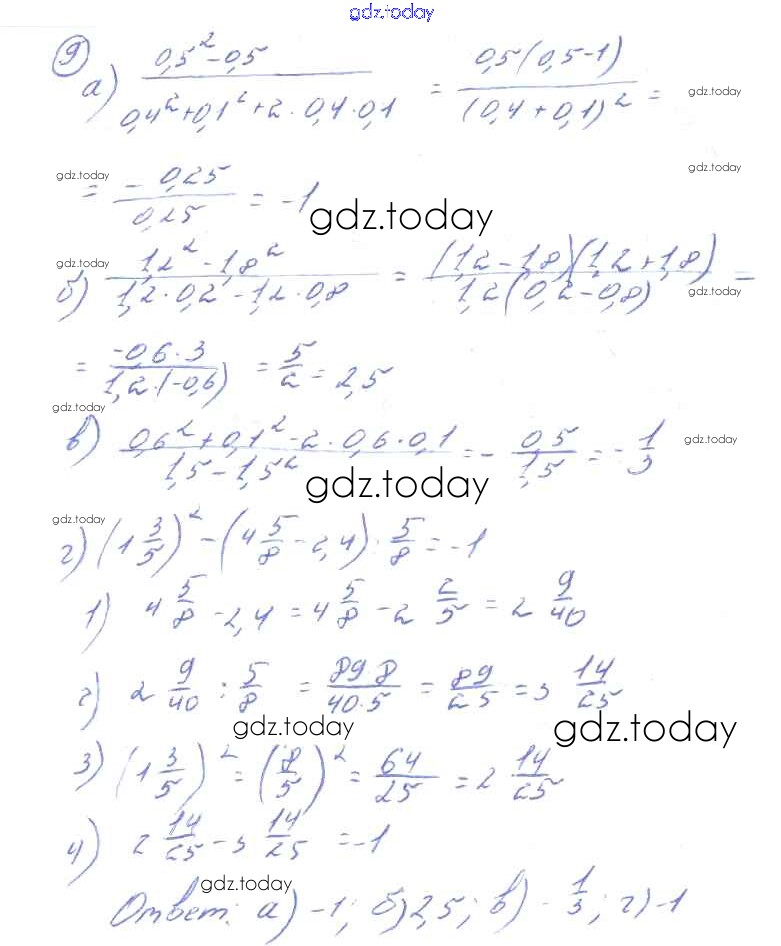 gdz.today
9
а) (0,5² - 0,5)/(0,4² + 0,1² + 2 · 0,4 · 0,1) = 0,5(0,5 - 1)/(0,4 + 0,1)² = gdz.today
gdz.today = - 0,25/0,25 = -1 gdz.today
gdz.today
gdz.today б) (1,2² - 1,8²)/(1,2 · 0,2 - 1,2 · 0,8) = (1,2 - 1,8)(1,2 + 1,8)/1,2(0,2 - 0,8) = gdz.today
= -0,6 · 3/1,2 · (-0,6) = 5/2 = 2,5
gdz.today
в) (0,6² + 0,1² - 2 · 0,6 · 0,1)/(1,5 - 1,5²) = - 0,5/1,5 = - 1/3 gdz.today
gdz.today
gdz.today г) (1 3/5)² - (4 5/8 - 2,4) : 5/8 = -1
1) 4 5/8 - 2,4 = 4 5/8 - 2 2/5 = 2 9/40
2) 2 9/40 : 5/8 = 89 8/40 · 5 = 89/25 = 3 14/25
gdz.today gdz.today
3) (1 3/5)² = (8/5)² = 64/25 = 2 14/25
4) 2 14/25 - 3 14/25 = -1
gdz.today
Ответ: а) -1; б) 2,5; в) - 1/3; г) -1